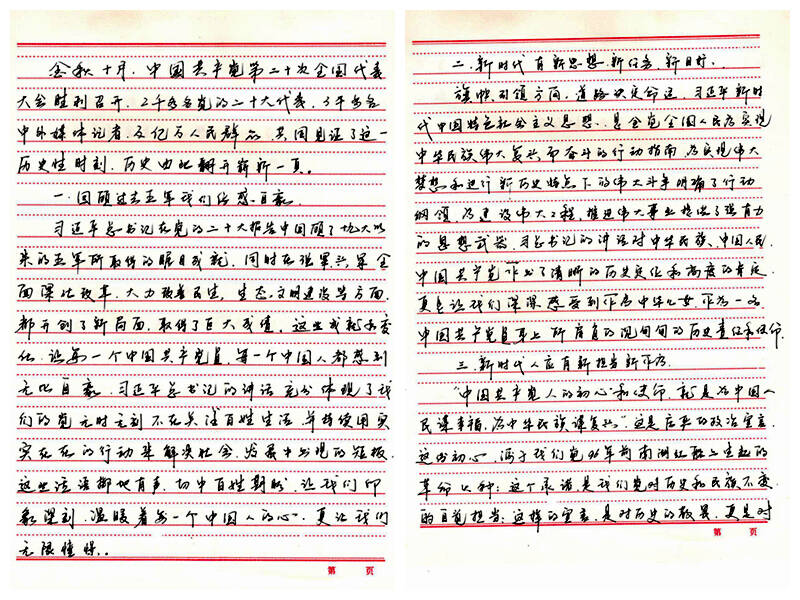 金秋十月，中国共产党第二十次全国代表
大会胜利召开，2千多名党的二十大代表，3千多名
中外媒体记者，及亿万人民群众，共同见证了这一
历史性时刻，历史由此翻开崭新一页。
一.回顾过去五年我们倍感自豪
习近平总书记在党的二十大报告中回顾了十九大以
来的五年所取得的瞩目成就，同时在强军兴军全
面深化改革，大力改善民生，生态文明建设等方面，
都开创了新局面，取得了巨大成绩，这些成就和变
化，让每一个中国共产党员，每一个中国人都感到
无比自豪，习近平总书记的讲话充分体现了我
们的党无时无刻不在关注百姓生活，并持续用实
实在在的行动来解决社会发展中出现的短板，
这些话语掷地有声，切中百姓期盼，让我们印
象深刻，温暖着每一个中国人的心，更让我们
无限憧憬..
第 页
二.新时代有新思想.新任务.新目标.
旗帜引领方向，道路决定命运，习近平新时
代中国特色社会主义思想，是全党全国人民为实现
中华民族伟大复兴而奋斗的行动指南，为实现伟大
梦想和进行新历史特点下的伟大斗争明确了行动
纲领，为建设伟大工程，推进伟大事业提供了强有力
的思想武器，习总书记的讲话对中华民族、中国人民、
中国共产党作出了清晰的历史定位和高度的肯定，
更是让我们深深感受到作为中华儿女，作为一名
中国共产党员身上所肩负的沉甸甸的历史责任和使命
三.新时代人应有新担当新作为.
“中国共产党人的初心和使命，就是为中国人
民谋幸福，为中华民族谋复兴”，这是庄严的政治宣言，
这份初心，源于我们党96年前南湖红船上生起的
革命火种；这个承诺，是我们党对历史和民族不变
的自觉担当；这样的宣言，是对历史的敬畏，更是对
第 页